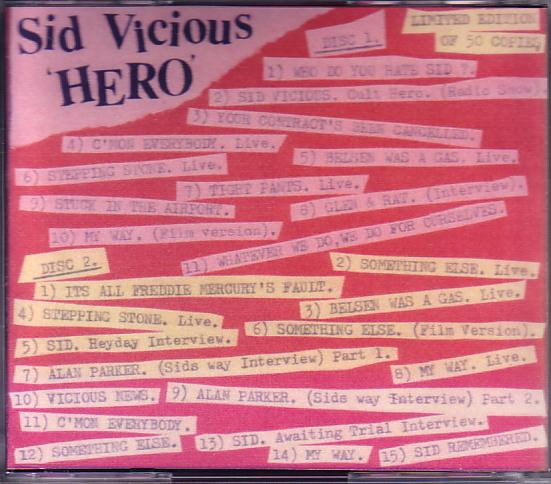 Sid Vicious
'HERO'
LIMITED EDITION
OF 50 COPIES
DISC 1.
1) WHO DO YOU HATE SID ?.
2) SID VICIOUS. Cult Hero. (Radio Show).
3) YOUR CONTRACT'S BEEN CANCELLED.
4) C'MON EVERYBODY. Live.
5) BELSEN WAS A GAS. Live.
6) STEPPING STONE. Live.
7) TIGHT PANTS. Live.
8) GLEN & RAT. (Interview).
9) STUCK IN THE AIRPORT.
10) MY WAY. (Film version).
11) WHATEVER WE DO,WE DO FOR OURSELVES.
DISC 2.
1) ITS ALL FREDDIE MERCURY'S FAULT.
2) SOMETHING ELSE. Live.
3) BELSEN WAS A GAS. Live.
4) STEPPING STONE. Live.
5) SID. Heyday Interview.
6) SOMETHING ELSE. (Film Version).
7) ALAN PARKER. (Sids way Interview) Part 1.
8) MY WAY. Live.
9) ALAN PARKER. (Sids way Interview) Part 2.
10) VICIOUS NEWS.
11) C'MON EVERYBODY.
12) SOMETHING ELSE.
13) SID. Awaiting Trial Interview.
14) MY WAY.
15) SID REMEMBERED.